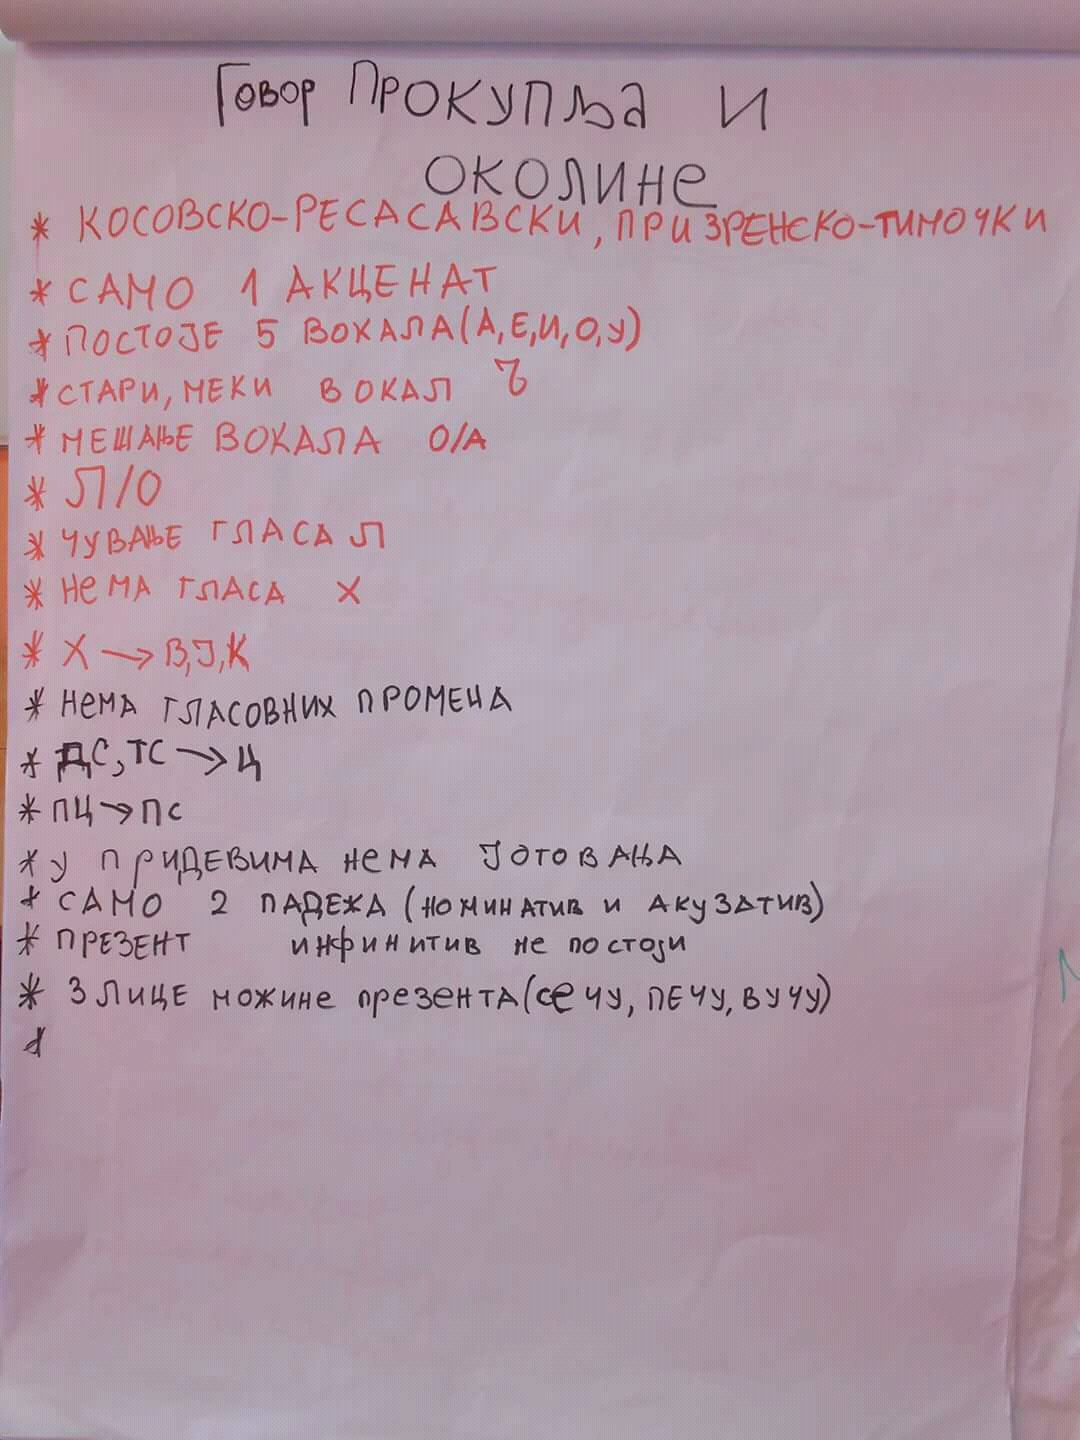 Говор ПРОКУПЉА И
ОКОЛИНЕ
* КОСОВСКО-РЕСАСАВСКИ, ПРИЗРЕНСКО-ТИМОЧКИ
* САМО 1 АКЦЕНАТ
* ПОСТОЈЕ 5 ВОКАЛА (А, Е, И, О, У)
* СТАРИ, МЕКИ ВОКАЛ Ъ
* МЕШАЊЕ ВОКАЛА О/А
* Л/О
* ЧУВАЊЕ ГЛАСА Л
* НЕМА ГЛАСА Х
* Х → В, Ј, К
* НЕМА ГЛАСОВНИХ ПРОМЕНА
* ДС, ТС → Ц
* ПЦ → ПС
* У ПРИДЕВИМА НЕМА ЈОТОВАЊА
* САМО 2 ПАДЕЖА (НОМИНАТИВ И АКУЗАТИВ)
* ПРЕЗЕНТ ИНФИНИТИВ НЕ ПОСТОЈИ
* 3 ЛИЦЕ МОЖИНЕ ПРЕЗЕНТА (СЕЧУ, ПЕЧУ, ВУЧУ)
*